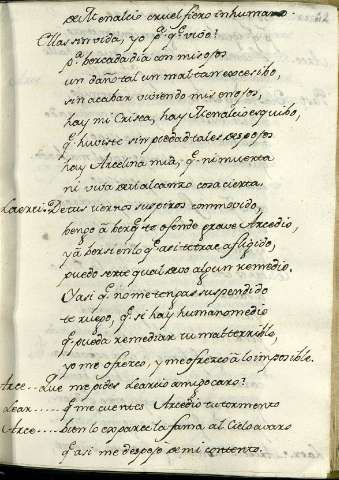 de Menalcio cruel fiero inhumano.
Ellas sin vida, yo pª. qᵉ. vivo?
pª. ber cada dia con mis ojos
un daño tal un mal tan excesibo,
sin acabar viviendo mis enojos,
hay mi Crisea, hay Menalcio esquibo,
qᵉ. huviste sin piedad tales despojos
hay Arcelina mia, qᵉ. ni muerta
ni viva de ti alcanzo cosa cierta.
De tus tiernos suspiros commovido,
bengo à ber qᵉ. te ofende grave Arcedio,
y à ber si en lo qᵉ. asi te trae afligido,
puedo serte qual devo algun remedio.
Y asi qᵉ. no me tengas suspendido
te ruego, qᵉ. si hay humano medio
qᵉ. pueda remediar tu mal terrible,
yo me ofrezco, y me ofrezco à lo imposible.
Arce... Que me pides Learcio amigo caro?
Lear..... qᵉ. me cuentes Arcedio tu tormento
Arce... bien lo exparce la fama al Cielo avaro
qᵉ. asi me despojo de mi contento.